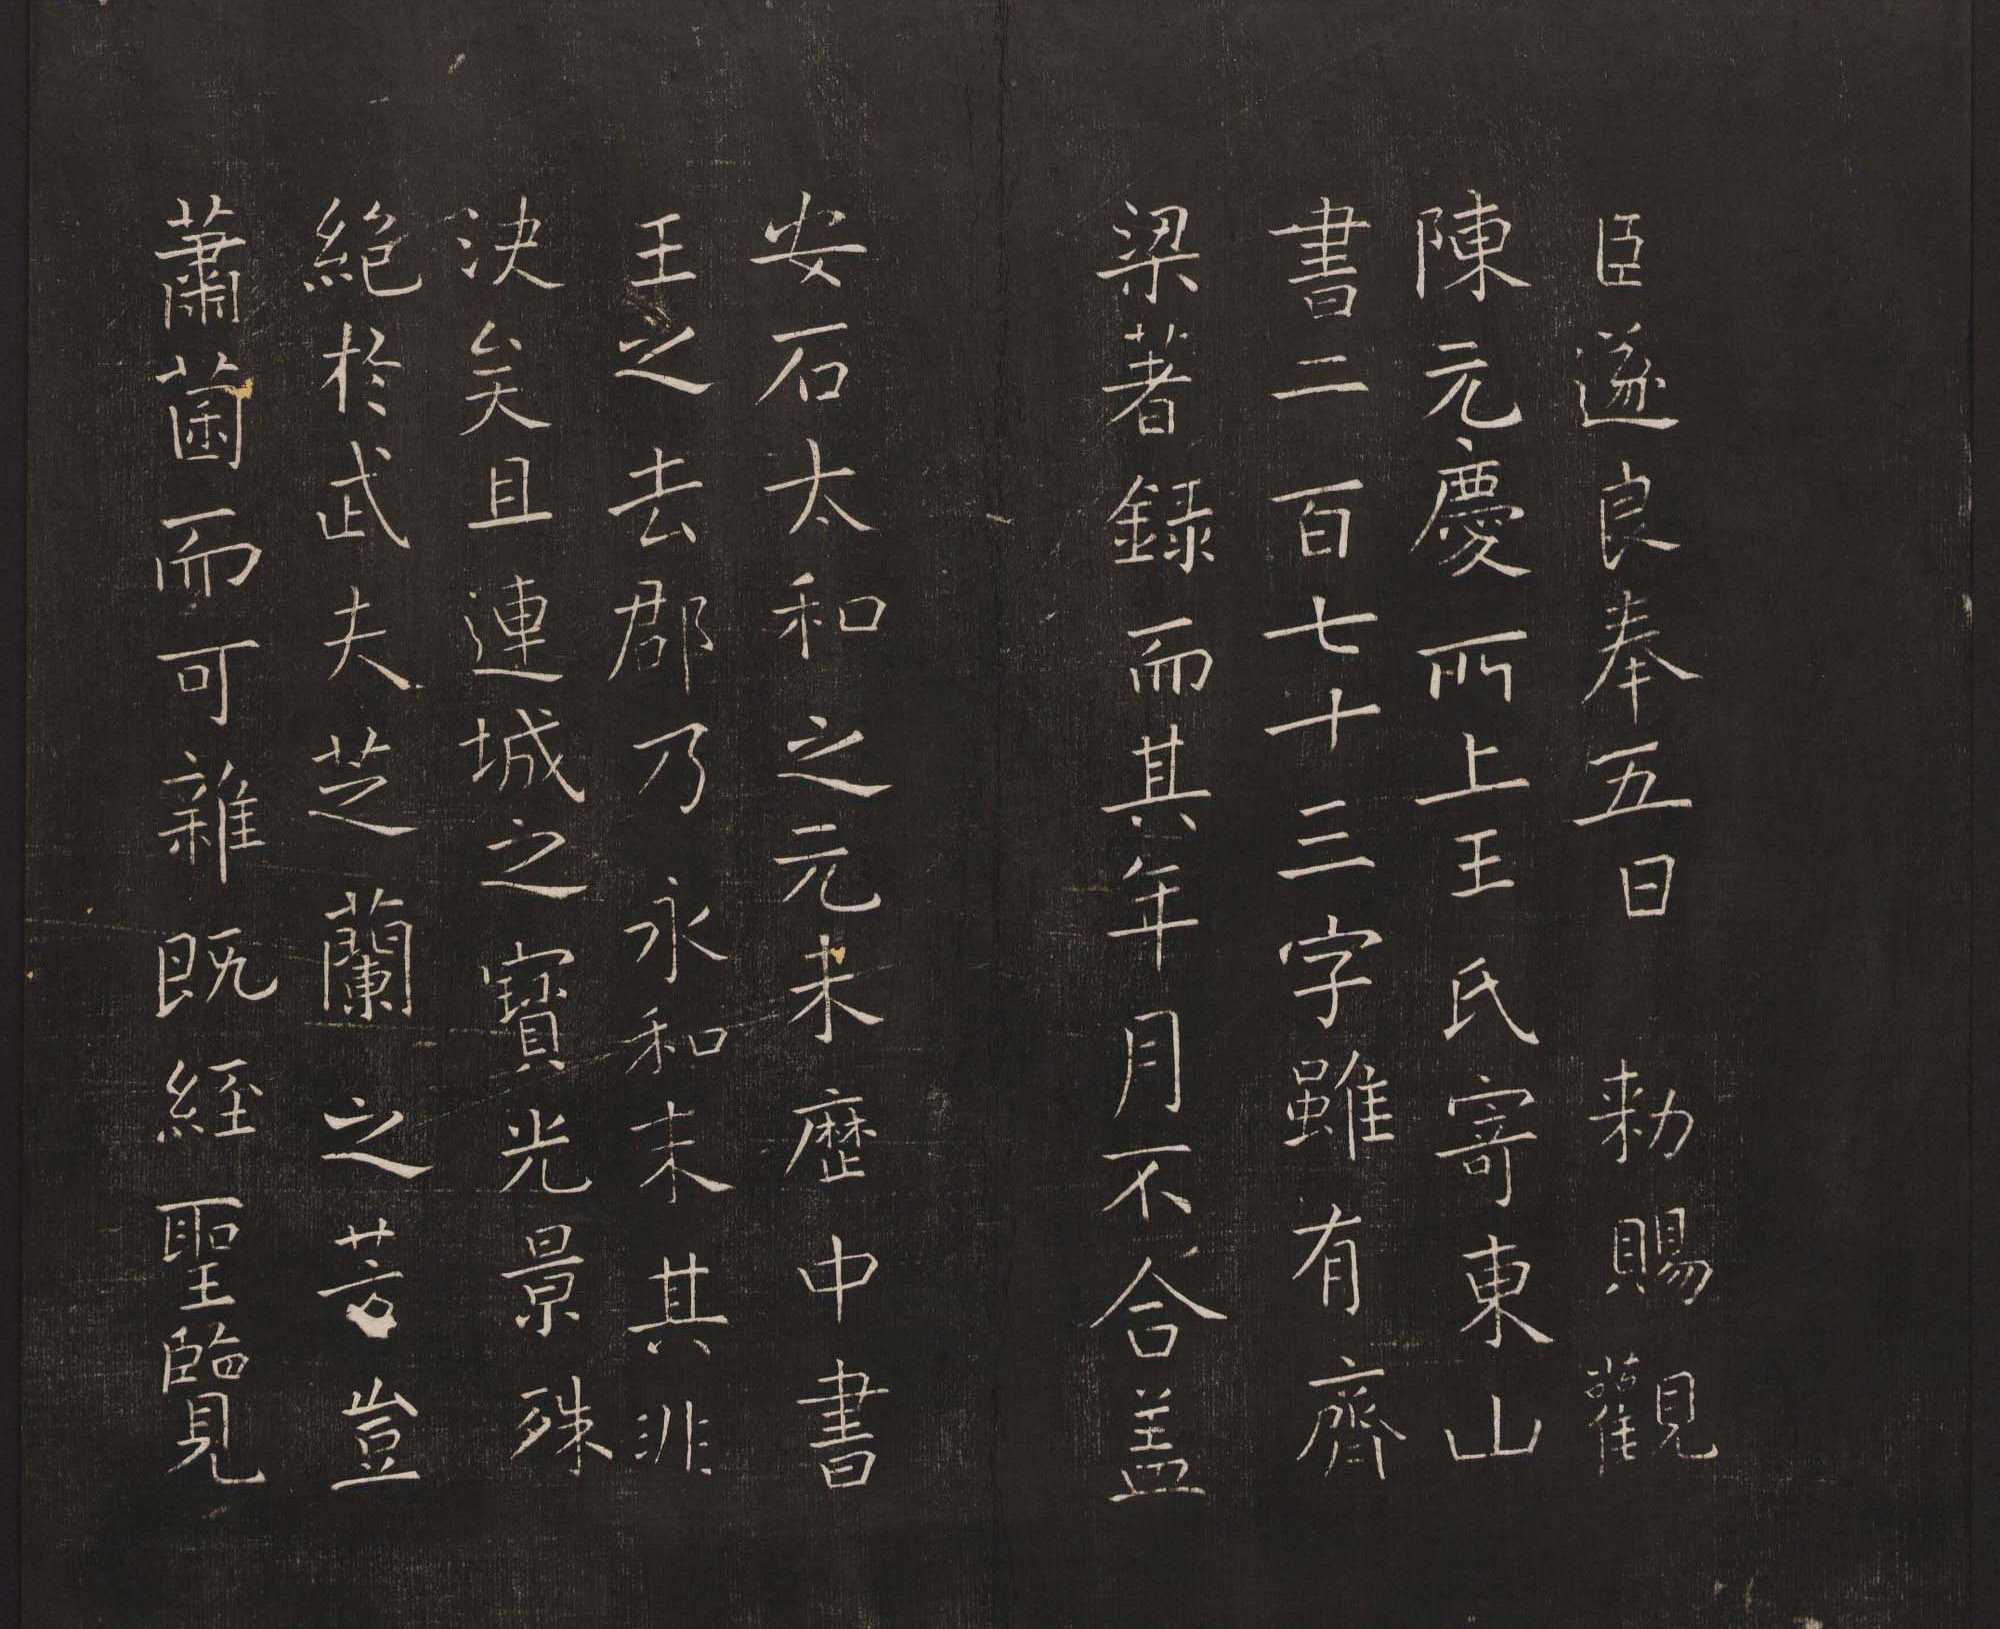 臣遂良奉五日 勅賜觀
陳元慶所上王氏寄東山
書二百七十三字雖有齊
梁著録而其年月不合盖
安石太和之元未歷中書
王之去郡乃永和末其非
決矣且連城之寶光景殊
絶於武夫芝蘭之芳豈
蕭茵而可雜既經聖臨見